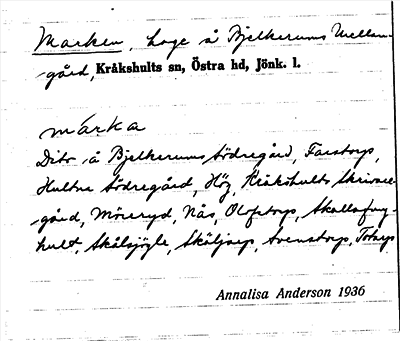 Marken, hage å Bjelkerums Mellan-
gård, Kråkshults sn, Östra hd, Jönk. l.
märka
Dito å Bjelkerums Södregård, Farstorp,
Hultna Södregård, Hög, Kråkshults Skrivare-
gård, Möreryd, Nås, Olofstorp, Skallafvey-
hult, Skälsjögle, Skäljarp, Svenstorp, Totarp
Annalisa Anderson 1936